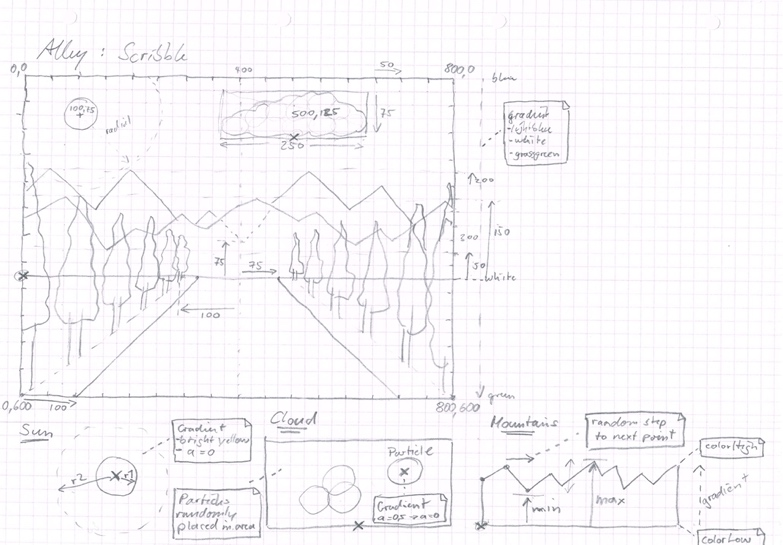 Alley : Scribble
0,0
400
50
800,0
blue
100,75
radial
500,125
75
250
gradient
-white
-grasgreen
200
150
200
50
75
75
white
100
0,600
100
800,600
green
Sun
Gradient
-bright yellow
- a=0
r2
r1
Cloud
Particles
randomly
placed in area
Particle
Gradient
a=0,5 → a=0
Mountains
random step
to next point
min
max
colorHigh
gradient
colorLow